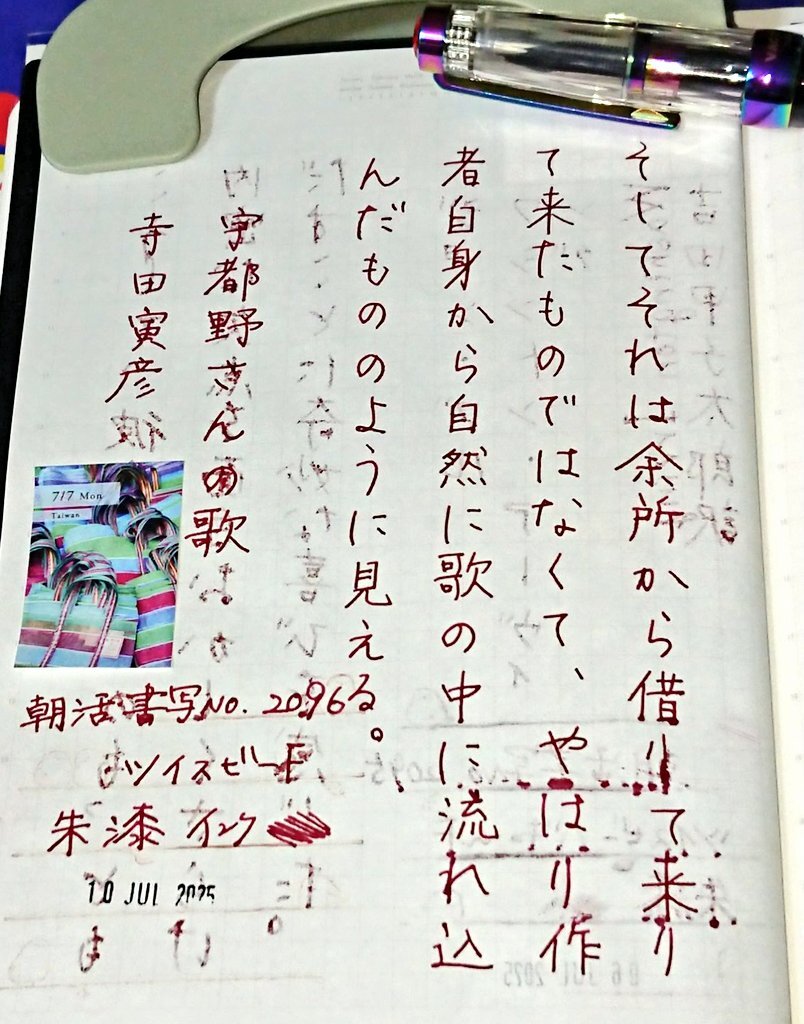 そしてそれは余所から借りて来り
て来たものではなくて、やはり作
者自身から自然に歌の中に流れ込
んだもののように見える。
宇都野さんの歌
寺田寅彦
7/7 Mon
Taiwan
朝活書写No. 2096
ツイスビーE
朱漆 インク
10 JUL 2025